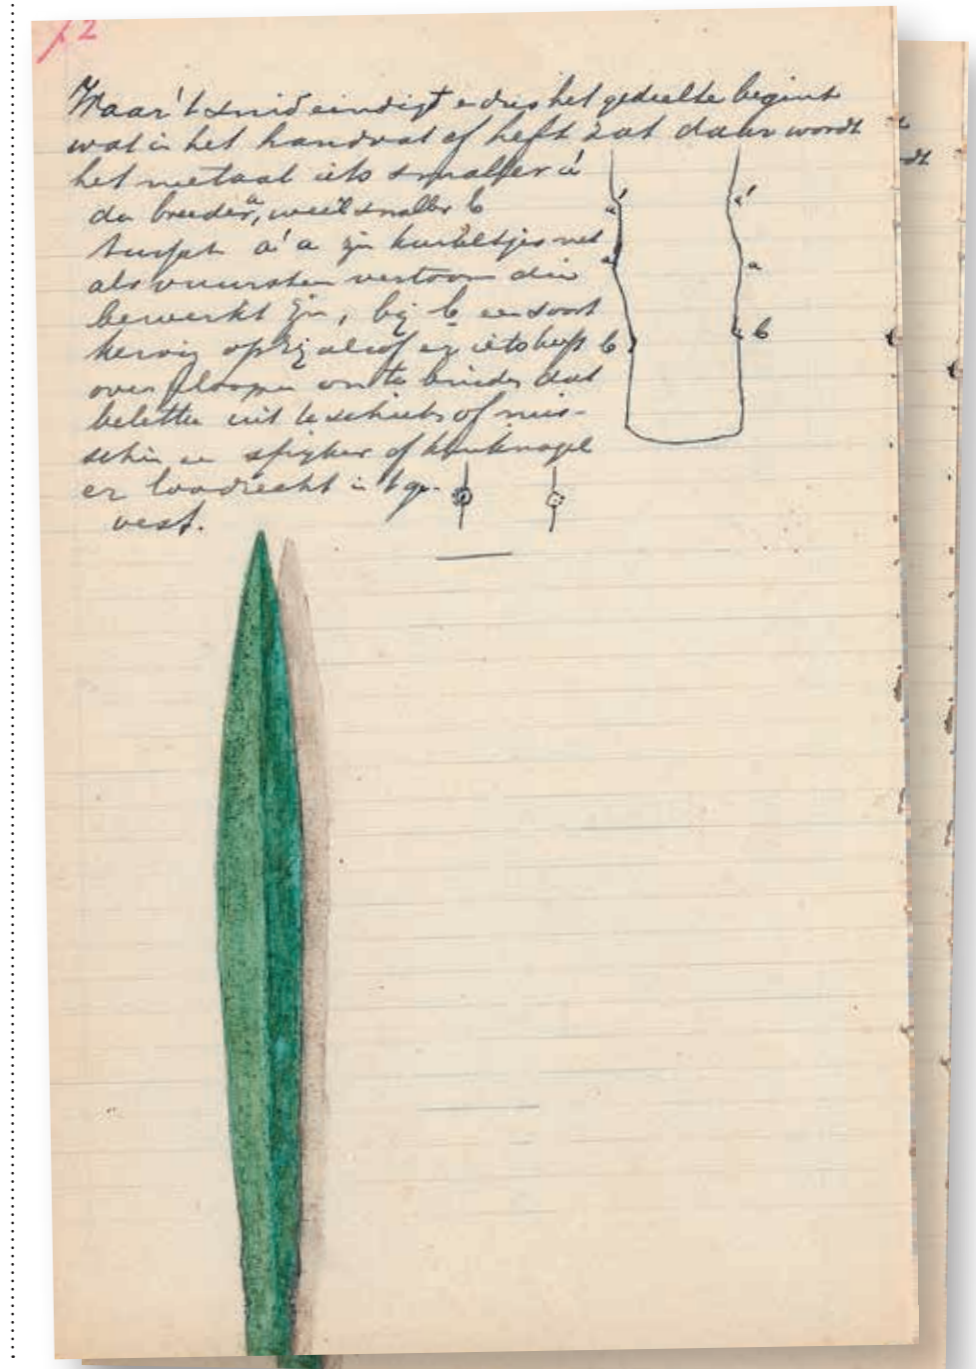 12
Waar 't snid eindigt e dus het gedeelte begint
wat in het handvat of heft zat daar wordt
het metaal iets smaller a'
dan breeder a, weer smaller b
a' a zijn karteltjes net
als vuursten vertoonen die
bewerkt zijn, bij b een soort
kerving opzij alsof er iets heeft
over om te binden dat
belette uit te schieten of mis-
schien een spijker of klinknagel
er loodrecht in 't ge-
vest.
a' a'
a a
b b